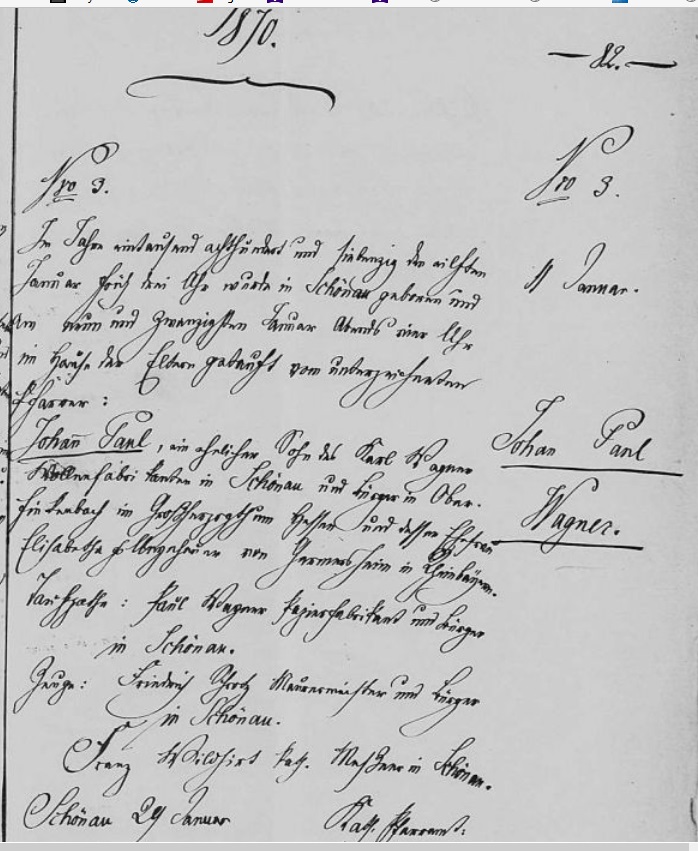 1870.
— 82. —
Nro 3.
Nro 3.
Im Jahre eintausend achthundert und siebenzig den eilften
11 Januar.
Januar früh drei Uhr wurde in Schönau geboren und
am neun und zwanzigsten Januar Abends vier Uhr
im Hause der Eltern getauft vom unterzeichneten
Pfarrer:
Johann Paul, ein ehelicher Sohn des Karl Wagner
Johan Paul
Wollenfabrikanten in Schönau und Bürger in Ober-
Wagner.
finkenbach im Großherzogthum Hessen und dessen Ehefrau
Elisabetha von Germersheim in Rheinbayern.
Taufpathe: Paul Wagner Papierfabrikant und Bürger
in Schönau.
Zeuge: Friedrich Maurermeister und Bürger
in Schönau.
Franz Wildhirt kath. Meßner in Schönau.
Schönau 29 Januar
Kath. Pfarramt: